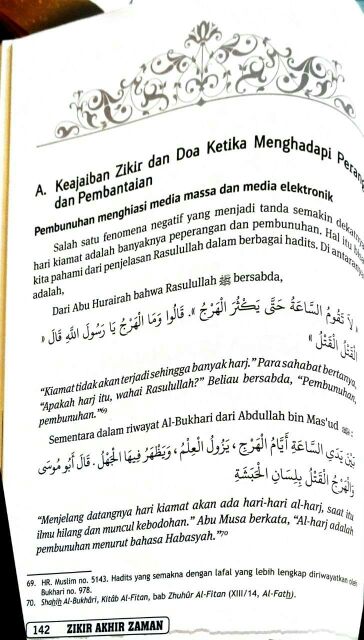 A. Keajaiban Zikir dan Doa Ketika Menghadapi Perang
dan Pembantaian
Pembunuhan menghiasi media massa dan media elektronik
Salah satu fenomena negatif yang menjadi tanda semakin dekatnya
hari kiamat adalah banyaknya peperangan dan pembunuhan. Hal itu bisa
kita pahami dari penjelasan Rasulullah dalam berbagai hadits. Di antaranya
adalah,
Dari Abu Hurairah bahwa Rasulullah ﷺ bersabda,
« لَا تَقُومُ السَّاعَةُ حَتَّى يَكْثُرَ الْهَرْجُ ». قَالُوا وَمَا الْهَرْجُ يَا رَسُولَ اللَّهِ قَالَ «
الْقَتْلُ الْقَتْلُ »
“Kiamat tidak akan terjadi sehingga banyak harj.” Para sahabat bertanya,
“Apakah harj itu, wahai Rasulullah?” Beliau bersabda, “Pembunuhan,
pembunuhan.”⁶⁹
Sementara dalam riwayat Al-Bukhari dari Abdullah bin Mas'ud :
بَيْنَ يَدَيِ السَّاعَةِ أَيَّامُ الْهَرْجِ ، يَزُولُ الْعِلْمُ ، وَيَظْهَرُ فِيهَا الْجَهْلُ . قَالَ أَبُو مُوسَى
وَالْهَرْجُ الْقَتْلُ بِلِسَانِ الْحَبَشَةِ
“Menjelang datangnya hari kiamat akan ada hari-hari al-harj, saat itu
ilmu hilang dan muncul kebodohan.” Abu Musa berkata, “Al-harj adalah
pembunuhan menurut bahasa Habasyah.”⁷⁰
69. HR. Muslim no. 5143. Hadits yang semakna dengan lafal yang lebih lengkap diriwayatkan oleh
Bukhari no. 978.
70. Shahih Al-Bukhâri, Kitâb Al-Fitan, bab Zhuhûr Al-Fitan (XIII/14, Al-Fath).
142 ZIKIR AKHIR ZAMAN